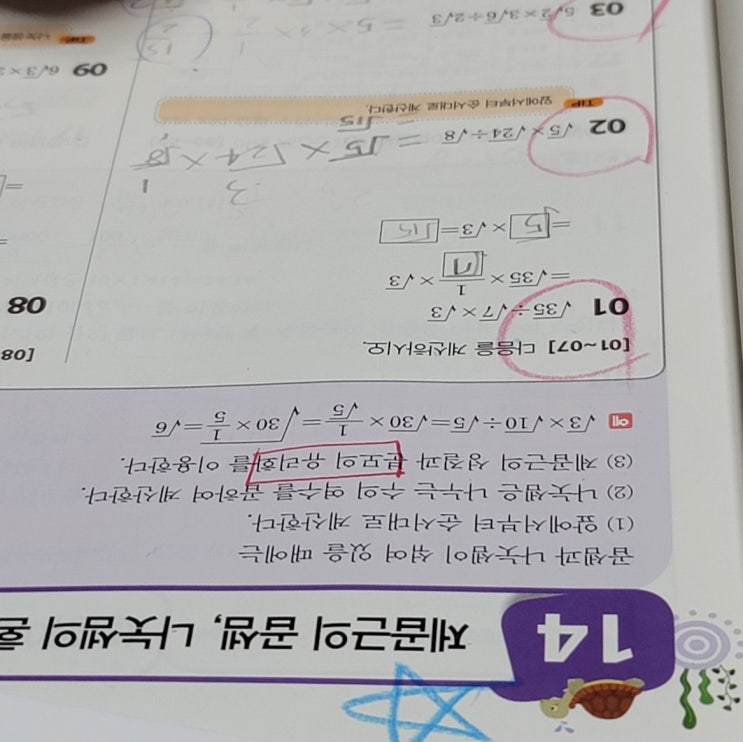 14 제곱근의 곱셈, 나눗셈의 혼
곱셈과 나눗셈이 섞여 있을 때에는
(1) 앞에서부터 순서대로 계산한다.
(2) 나눗셈은 나누는 수의 역수를 곱하여 계산한다.
(3) 제곱근의 성질과 분모의 유리화를 이용한다.
예 √3×√10÷√5=√30×1/√5=√(30×1/5)=√6
[01~07] 다음을 계산하시오.
01 √35÷√7×√3
=√35×1/√7×√3
=√5×√3=√15
02 √5×√24÷√8 = √5×√24×1/√8
= √15
TIP 앞에서부터 순서대로 계산한다.
03 5√2×3√6÷2√3
[08
08
09 6√3×
TIP